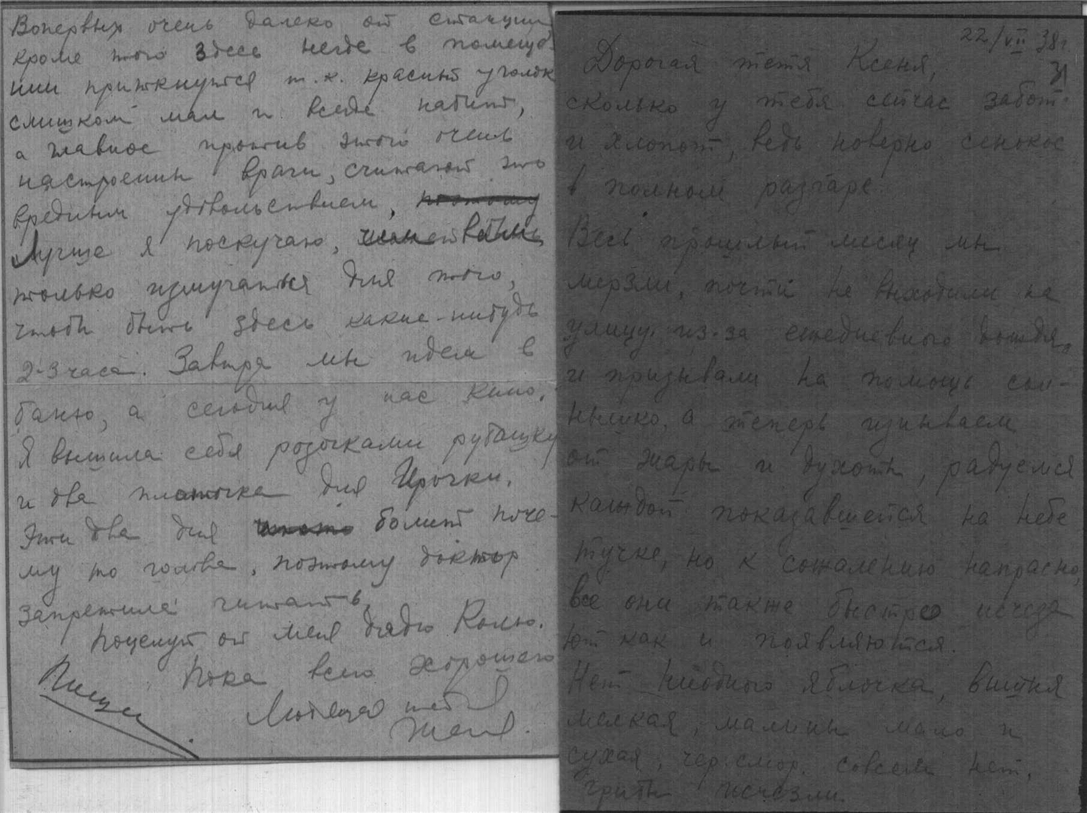 22/VII 38г.
31
Дорогая тетя Ксеня,
сколько у тебя сейчас забот
и хлопот, ведь новерно сенокос
в полном разгаре.
Весь прошлый месяц мы
мерзли, почти не выходили на
улицу из-за ежедневного дождя,
и призывали на помощь сол-
нышко, а теперь изнываем
от жары и духоты, радуемся
каждой показавшейся на небе
тучке, но к сожалению напрасно,
все они также быстро исчеза
ют как и появляются.
Нет ниодного яблочка, вишня
мелкая, малины мало и
сухая, чер. смор. совсем нет,
грибы исчезли.
Вопервых очень далеко от станции,
кроме того здесь негде в помеще
нии приткнутся т.к. красный уголок
слишком мал и всегда набит,
а главное против этого очень
настроены врачи, считают это
вредным удовольствием,
Лучше я поскучаю,
только измучаться для того,
чтобы быть здесь какие-нибудь
2-3 часа. Завтра мы идем в
баню, а сегодня у нас кино.
Я вышила себя розочками рубашку
и два платочка для Ирочки.
Эти два дня болит поче-
му то голова, поэтому доктор
запретила читать.
Поцелуй от меня дядю Колю.
Пока всего хорошего
Пиши
Любящая тебя
Женя.